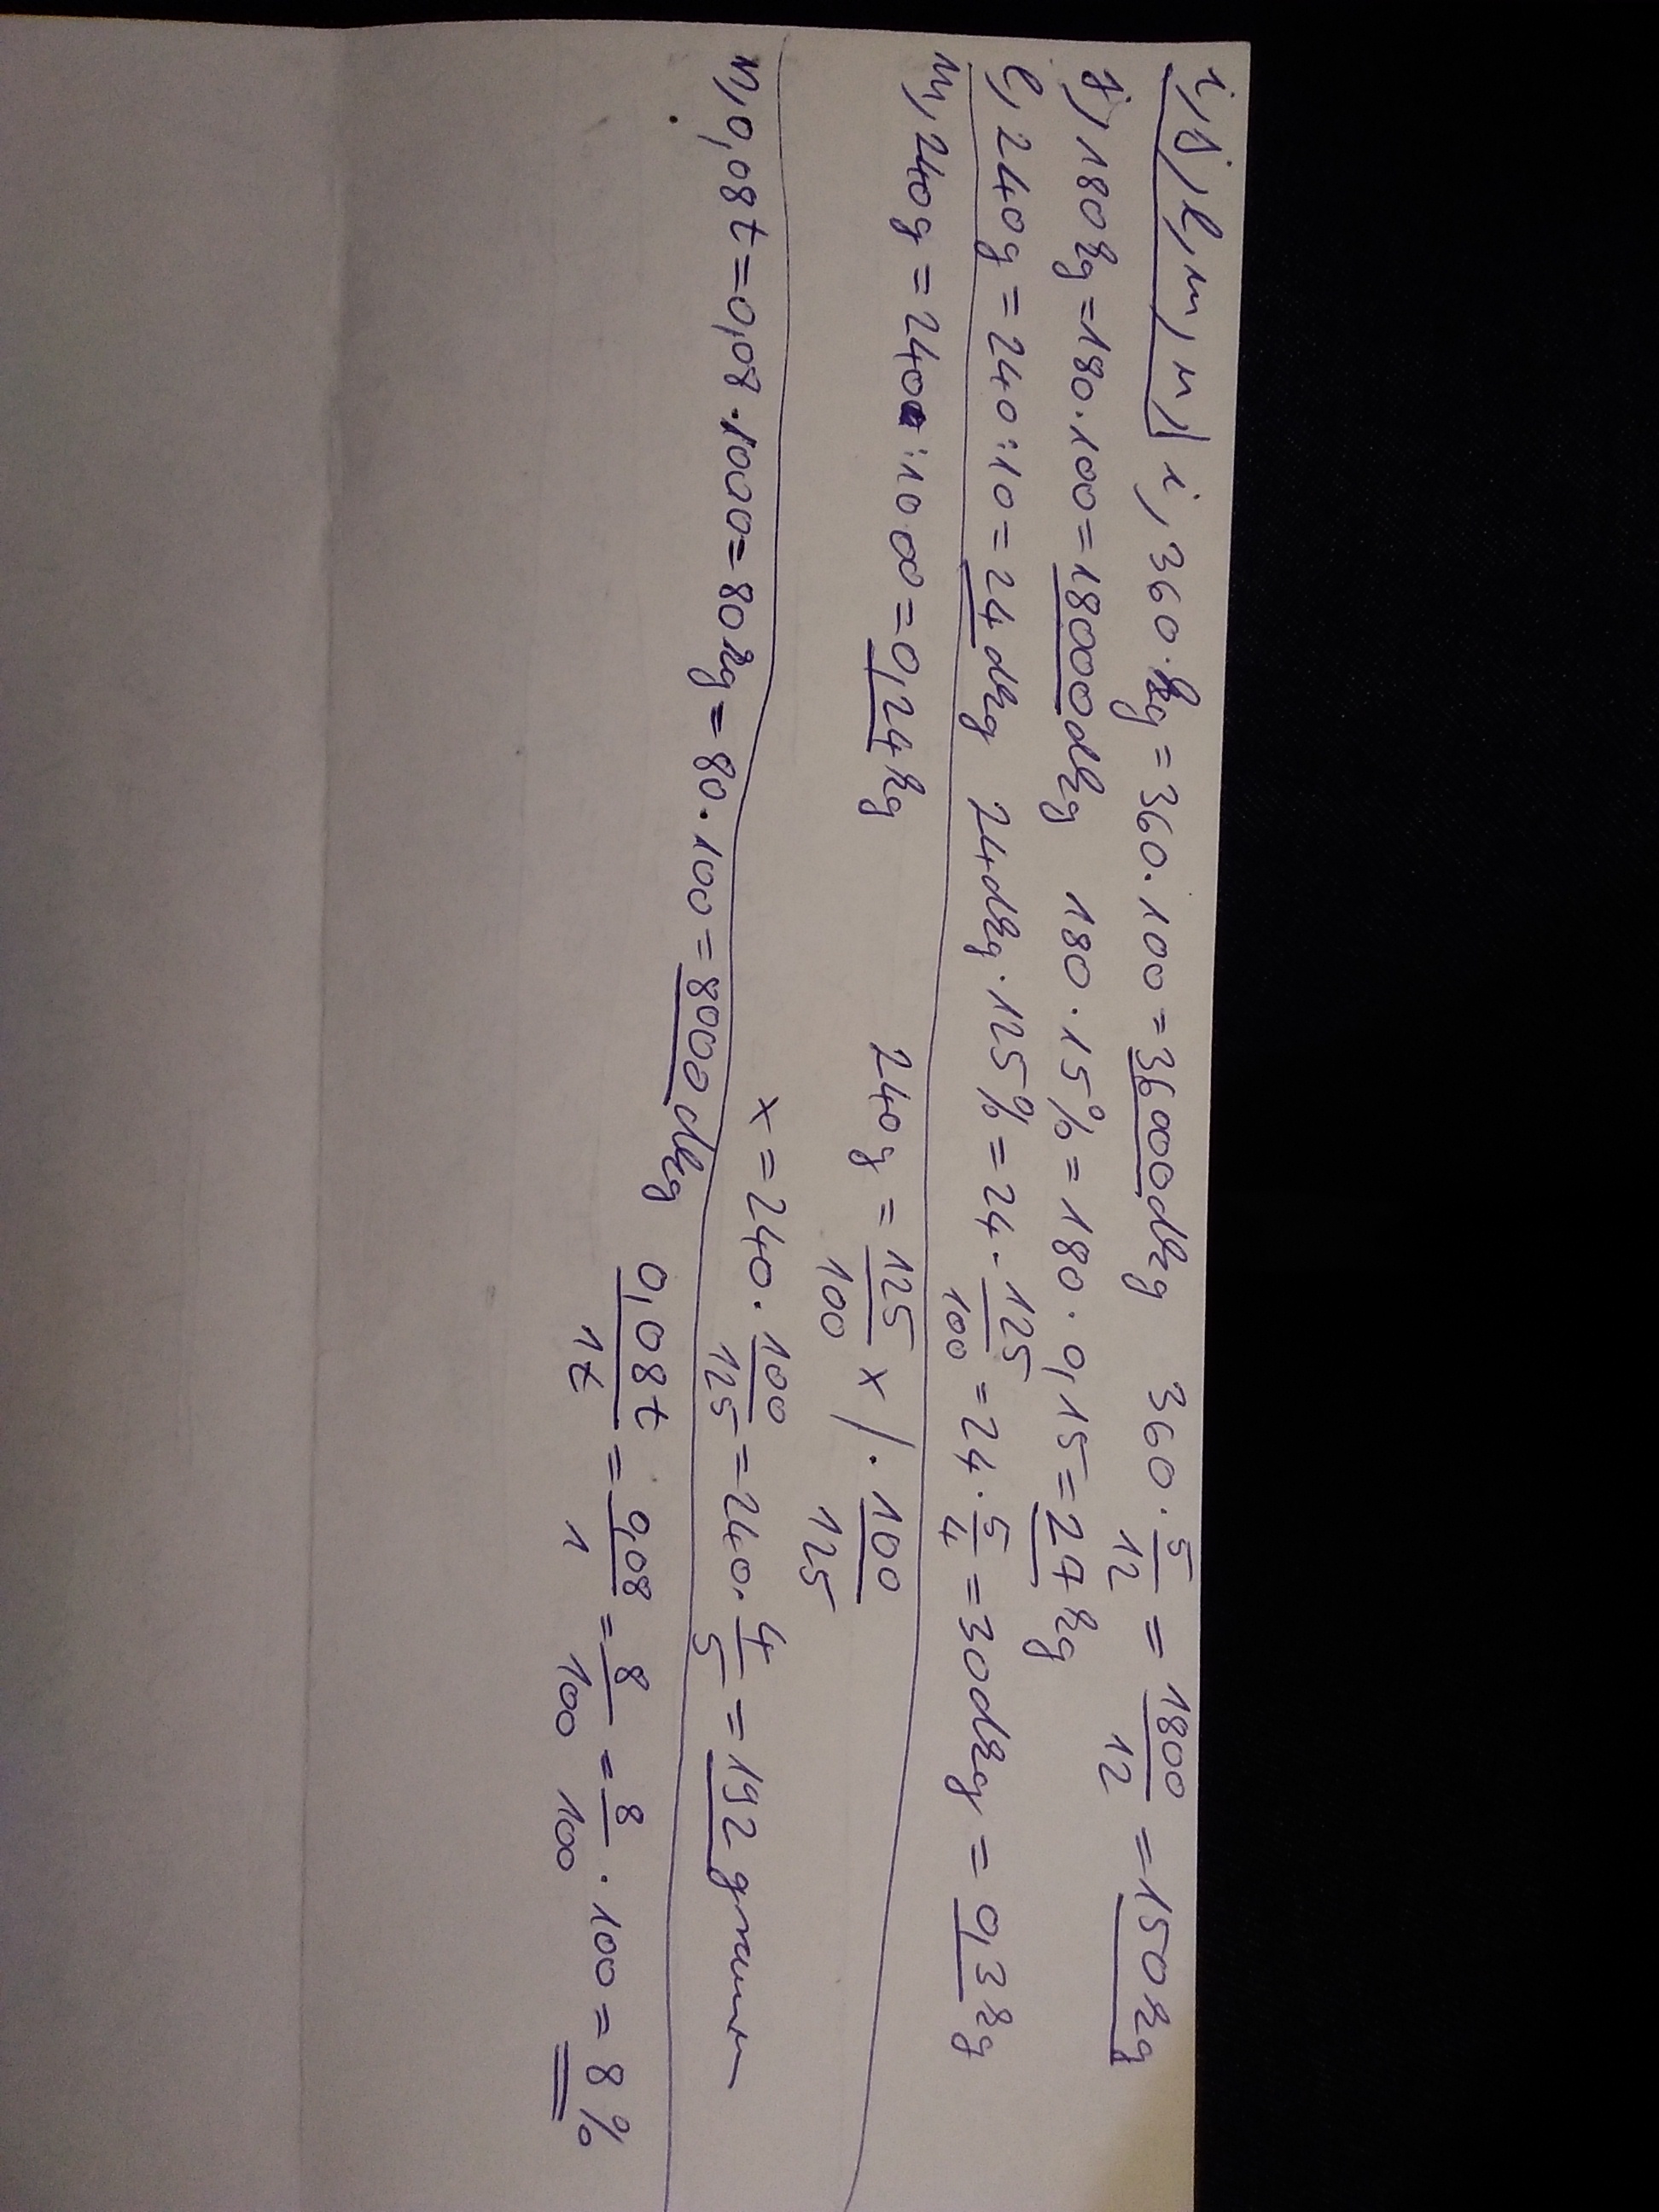 i, j, l, m, n | i, 360 kg = 360 · 100 = 36000 dkg 360 · 5/12 = 1800/12 = 150 kg
j, 180 kg = 180 · 100 = 18000 dkg 180 · 15% = 180 · 0,15 = 27 kg
l, 240 g = 240 : 10 = 24 dkg 24 dkg · 125% = 24 · 125/100 = 24 · 5/4 = 30 dkg = 0,3 kg
m, 240 g = 240 : 1000 = 0,24 kg 240 g = 125/100 x / · 100/125
x = 240 · 100/125 = 240 · 4/5 = 192 gramm
n, 0,08 t = 0,08 · 1000 = 80 kg = 80 · 100 = 8000 dkg 0,08t/1t = 0,08/1 = 8/100 = 8/100 · 100 = 8%